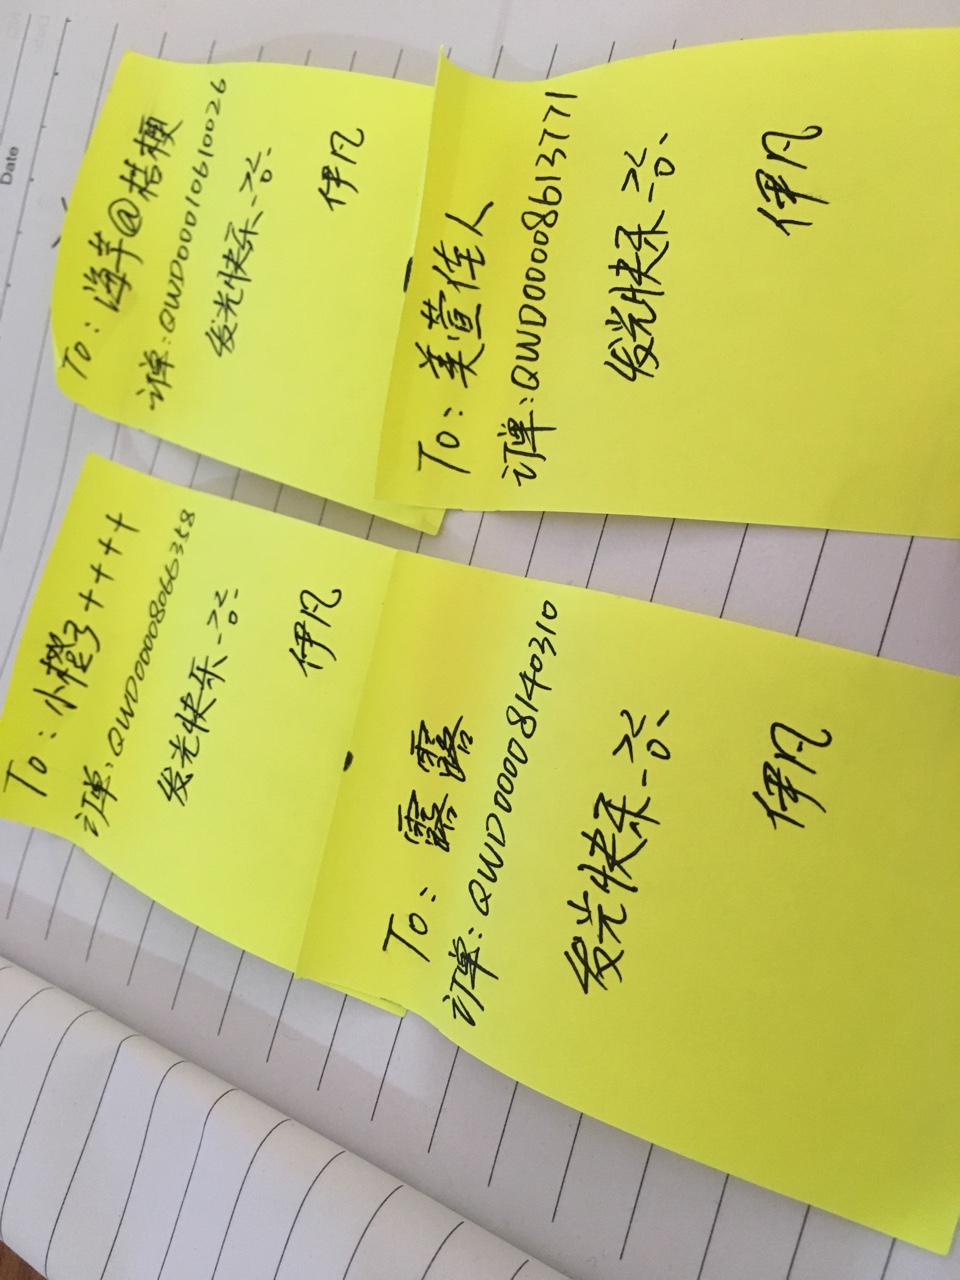 Date
To：小橙子++++
订单：QWD00008066358
发光快乐一点、
伊凡
To：海芋@桔梗
订单：QWD00010610026
发光快乐一点、
伊凡
To：露露
订单：QWD00008140310
发光快乐一点、
伊凡
To：美萱佳人
订单：QWD00008613771
发光快乐一点、
伊凡